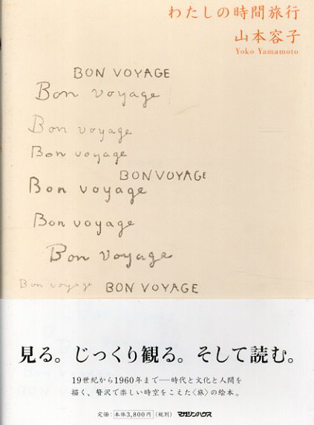 わたしの時間旅行
山本容子
Yoko Yamamoto
BON VOYAGE
Bon voyage
Bon voyage
Bon voyage
BON VOYAGE
Bon voyage
Bon voyage
Bon voyage
Bon voyage BON VOYAGE
見る。じっくり観る。そして読む。
19世紀から1960年まで──時代と文化と人間を
描く、贅沢で楽しい時空をこえた〈旅〉の絵本。
定価:本体3,800円(税別) マガジンハウス